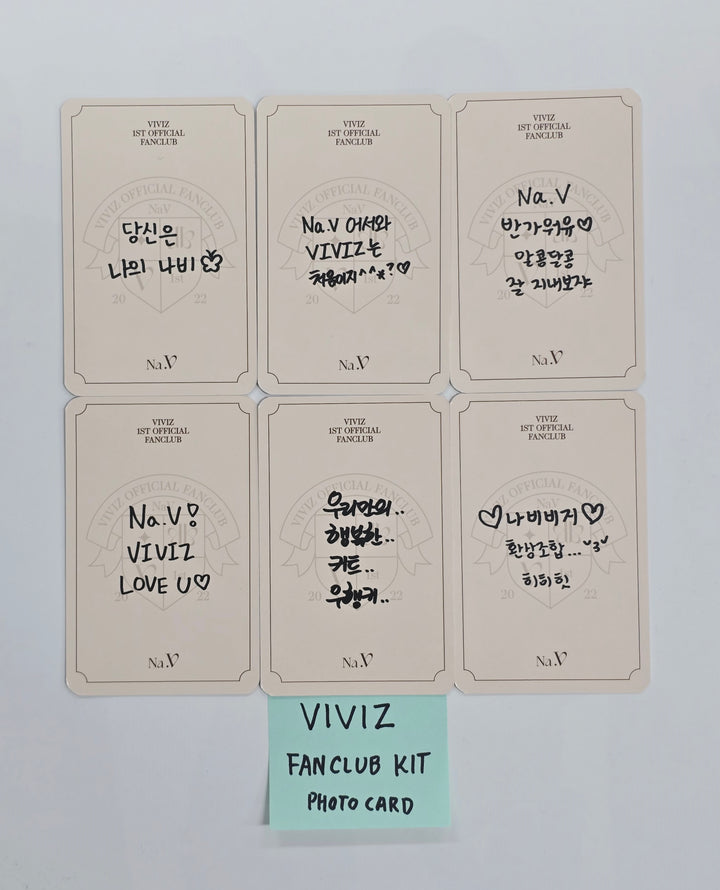 VIVIZ
1ST OFFICIAL
FANCLUB
VIVIZ OFFICIAL FANCLUB
NaV
당신은
나의 나비
1st
20 22
Na.V
VIVIZ
1ST OFFICIAL
FANCLUB
VIVIZ OFFICIAL FANCLUB
Na.V 어서와
VIVIZ는
처음이지^^*?♡
20 22
Na.V
VIVIZ
1ST OFFICIAL
FANCLUB
VIVIZ OFFICIAL FANCLUB
Na.V
반가워유♡
알콩달콩
잘 지내보쟈
20 22
Na.V
VIVIZ
1ST OFFICIAL
FANCLUB
VIVIZ OFFICIAL FANCLUB
Na.V!
VIVIZ
LOVE U♡
20 22
Na.V
VIVIZ
1ST OFFICIAL
FANCLUB
VIVIZ OFFICIAL FANCLUB
우리만의..
행복한..
키트..
1st
우행키..
20 22
Na.V
VIVIZ
1ST OFFICIAL
FANCLUB
VIVIZ OFFICIAL FANCLUB
NaV
♡나비비지♡
환상조합...ˇ3ˇ
히히힛
20 22
Na.V
VIVIZ
FANCLUB KIT
PHOTO CARD